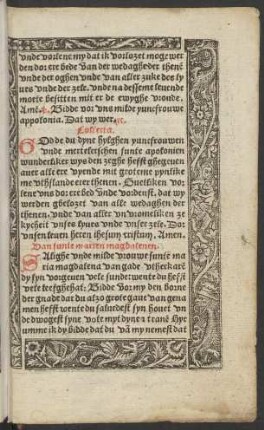 vnde vorlene my dat ik vorlozet moge wer
den dor ere bede van der wedaghe der thene
vnde der oghen vnde van aller zuke des ly
ues vnde der zele. vnde na dessem leuende
mote besitten mit er de ewyghe vroude.
Amē. Bidde vor vns milde yuncfrouwe
appolonia. Dat wy wer. ꝛc.
Collecta.
GOdde du dyne hylghen yuncfrouwen
vnde mertelerschen sunte apolonien
wunderliker wys den zeghe hefft ghegeuen
auer alle ere vyende mit groteme pynlike
me vthslande erer thenen. Guetliken vor
lene vns dor ere bed vnde vordenst. dat wy
werden ghelozet van alle wedaghen der
thenen. vnde van aller vnvromeliken ze
kycheit vnses lyues vnde vnser zele. Dor
vnsen leuen heren ihesum cristum. Amen.
Van sunte marien magdalenen.
SAlighe vnde milde vrouwe sunte ma
ria magdalena van gade vtherkaren
dy syn vorgeuen vele sunde wente du hest
vele leefghehat. Bidde vor my den borne
der gnade dar du alzo grote gaue van gena
men hefft wente du saluedest syn houet vn
de dwogest syne vote myt dynen tranē Hyr
umme ik dy bidde dat du vā my nemest dat